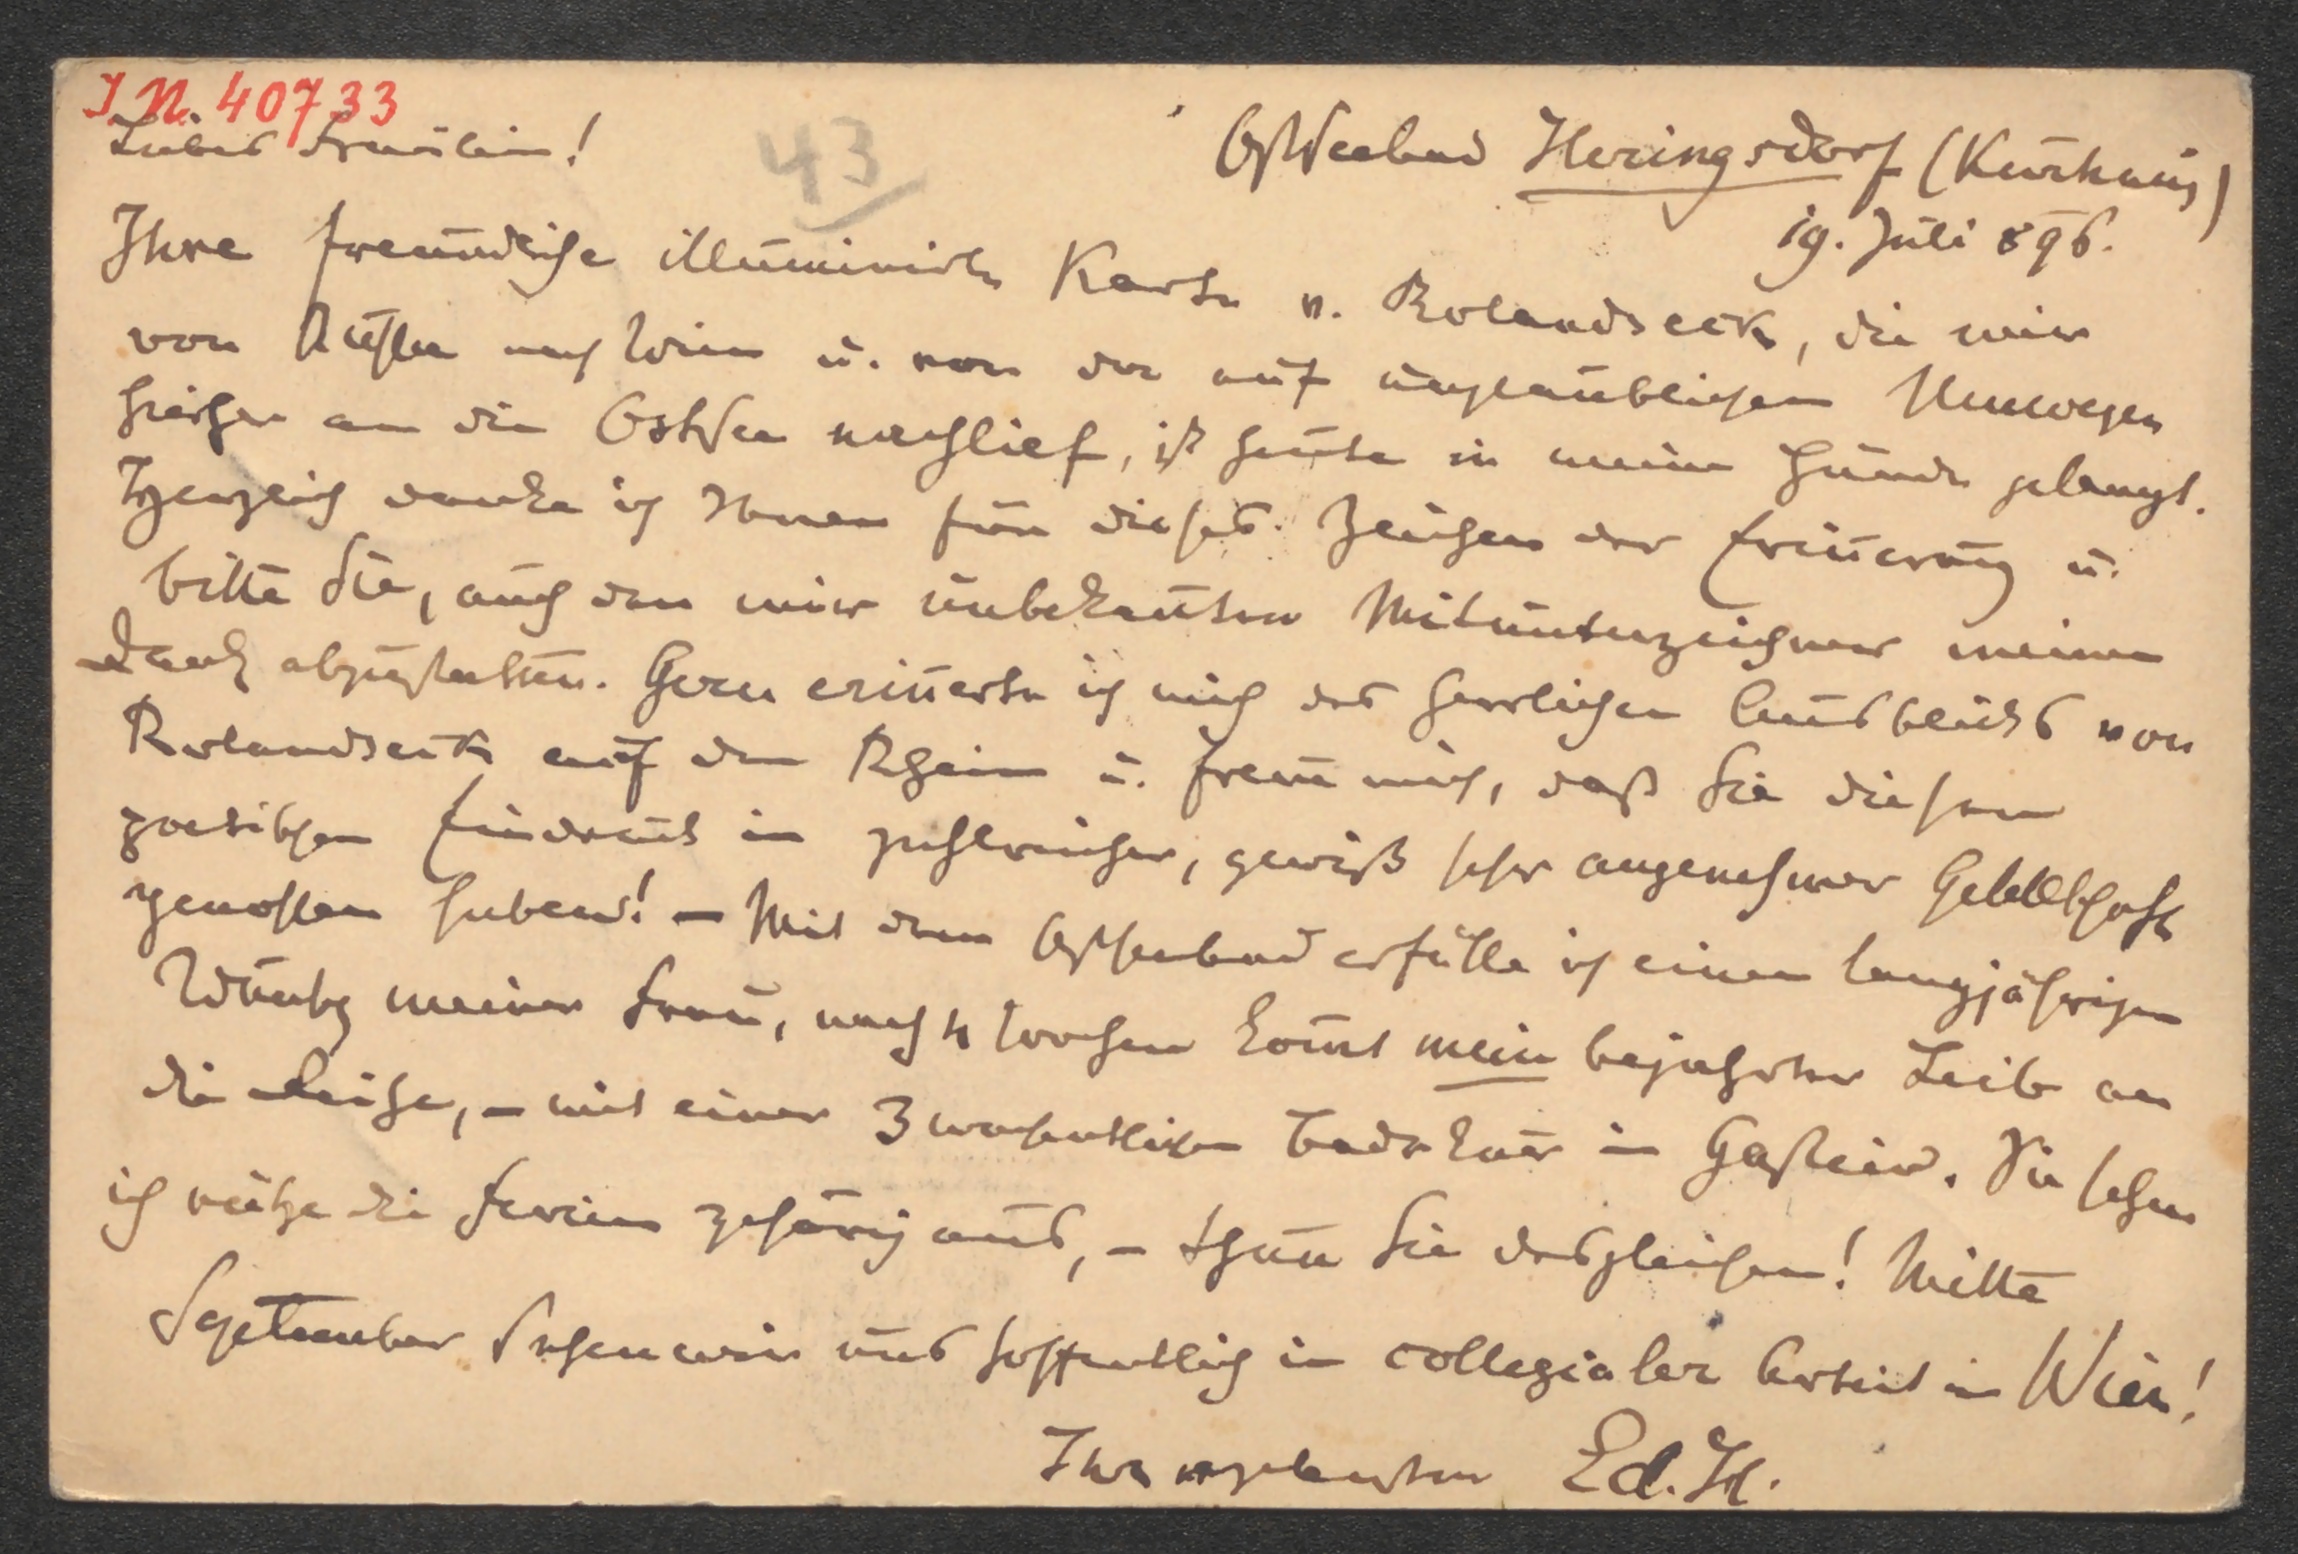 I.N. 40733
43
Liebes Fräulein!
Ostseebad Heringsdorf (Kurhaus)
19. Juli 896.
Ihre freundliche illuminirte Karte v. Rolandseck, die mir
von Aussee nach Wien u. von da auf unglaublichen Umwegen
hierher an die Ostsee nachlief, ist heute in meine Hände gelangt.
Herzlich danke ich Ihnen für dieses Zeichen der Erinerung u.
bitte Sie, auch den mir unbekanten Mitunterzeichner meinen
Dank abzustatten. Gern erinerte ich mich des herrlichen Ausblicks von
Rolandseck auf den Rhein u. freue mich, daß Sie diesen
poetischen Eindruck in zahlreicher, gewiß sehr angenehmer Gesellschaft
genossen haben! – Mit dem Ostseebad erfülle ich einen langjährigen
Wunsch meiner Frau, nach 4 Wochen komt mein bejahrter Leib an
die Reihe, – mit einer 3 wochentlichen Badekur in Gastein. Sie sehen
ich nütze die Ferien gehörig aus, – thun Sie desgleichen! Mitte
September sehen wir uns hoffentlich in collegialer Arbeit in Wien!
Ihr ergebenster Ed. H.